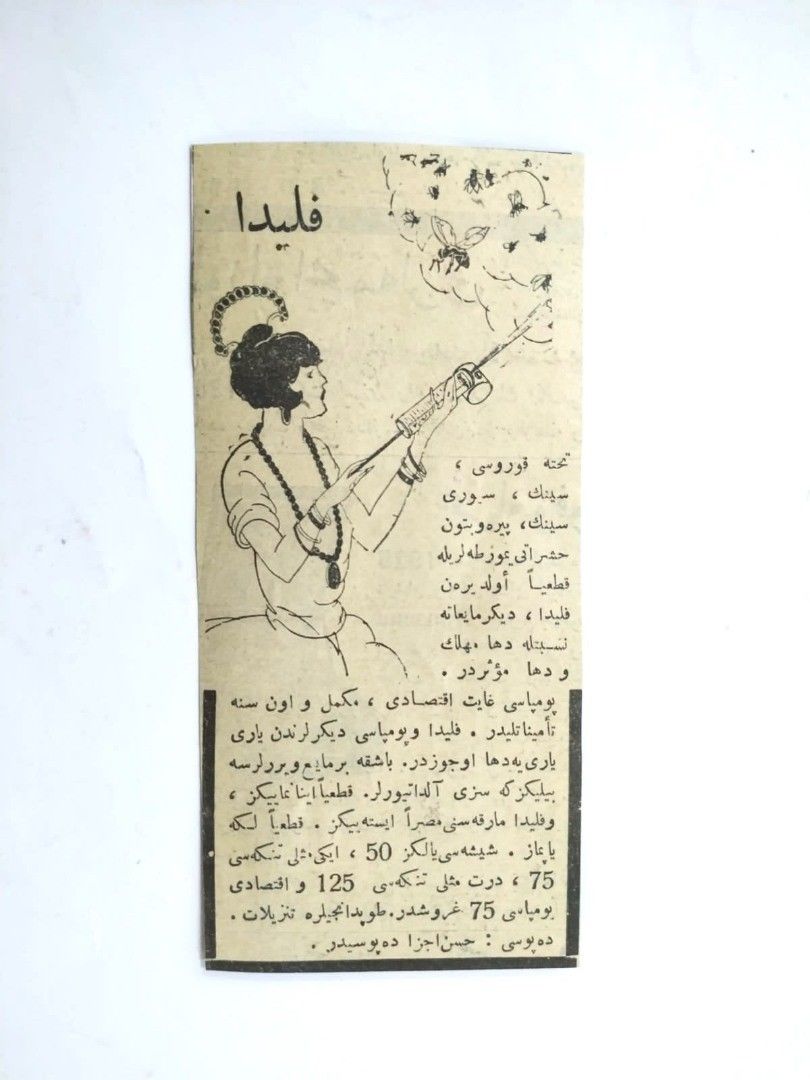 فليدا
تخته قوروسى ،
سينك ، سيورى
سينك، پيره وبتون
حشراتى يمورطه لريله
قطعياً أولديرەن
فليدا ، ديكر مايعاته
نسبتله دها مهلك
و دها مؤثردر .
پومپاسى غايت اقتصادى ، مكمل و اون سنه
تأميناتليدر . فليدا وپومپاسى ديكرلرندن يارى
يارى يه دها اوجوزدر. باشقه برمايع ويررلرسه
بيليكزكه سزى آلداتيورلر. قطعياً اينانماييكز ،
وفليدا مارقه سنى مصراً ايسته ييكز . قطعياً لكه
ياپماز . شيشه سى يالكز 50 ، ايكى مثلى تنكه سى
75 ، درت مثلى تنكه سى 125 و اقتصادى
پومپاسى 75 غروشدر. طوپدانجيلره تنزيلات .
دەپوسى : حسن اجزا دەپوسيدر .